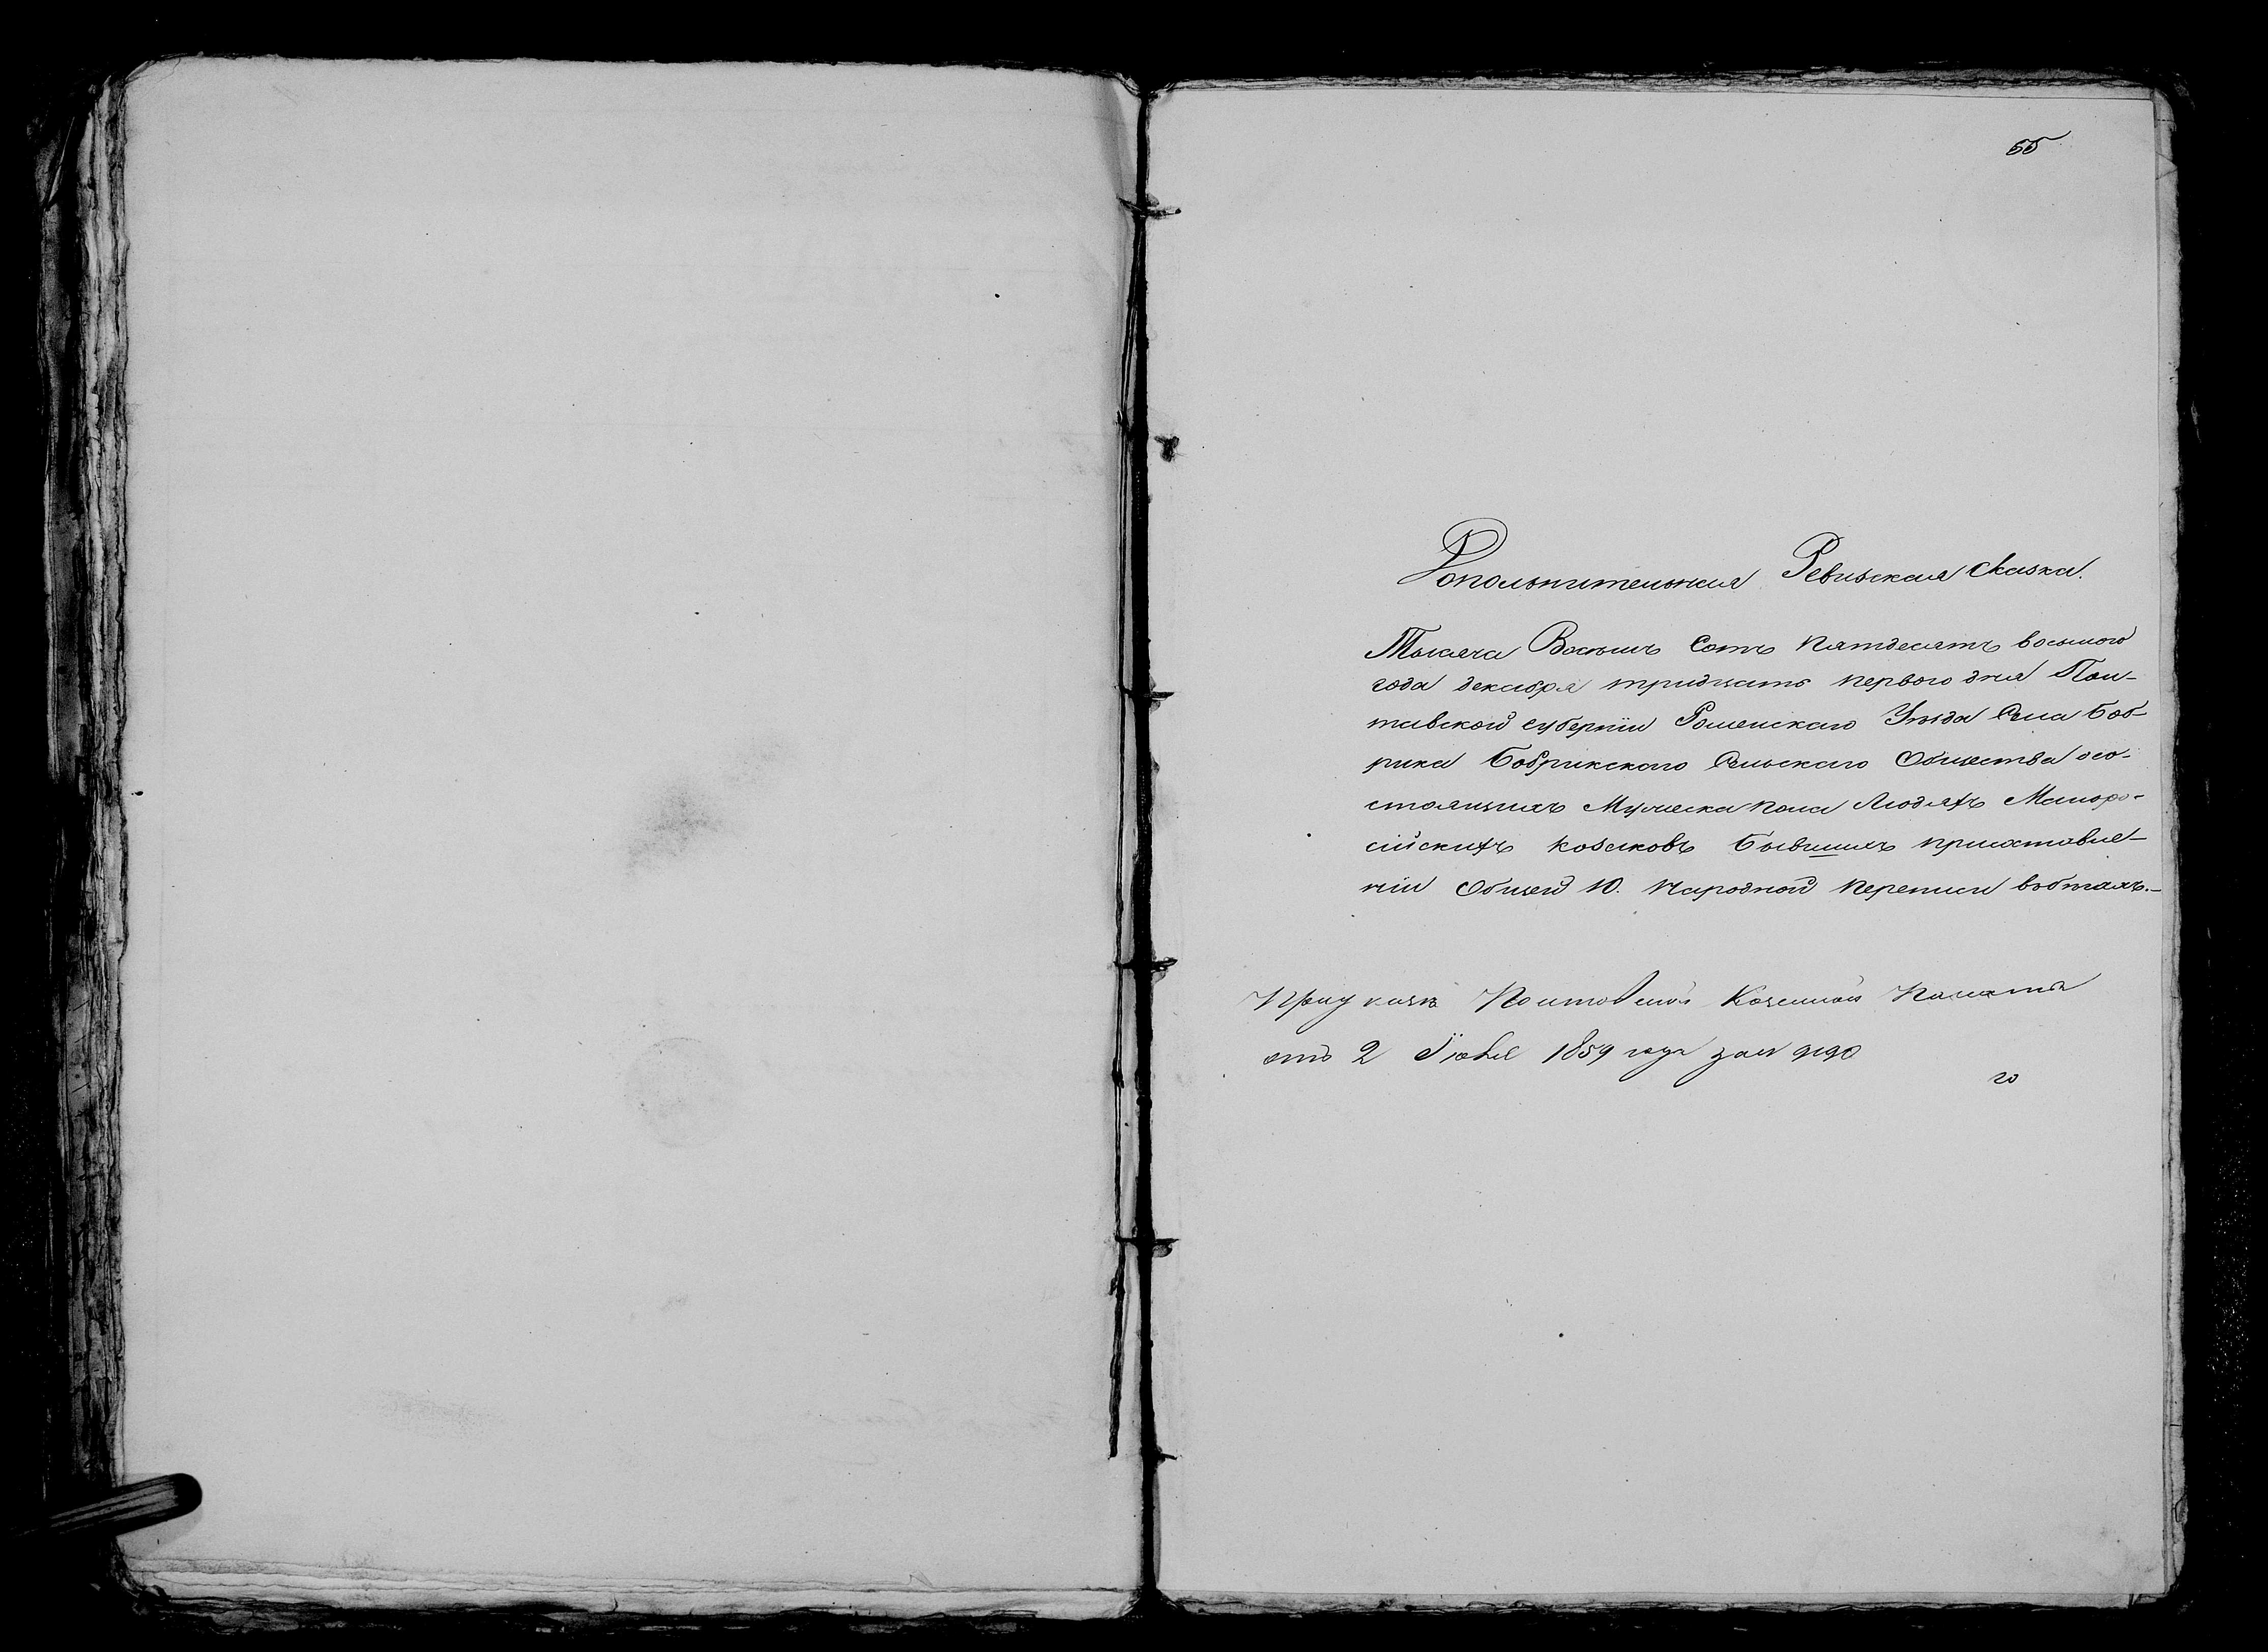 55
Дополнительная Ревизская сказка.
Тысяча Восемь Сотъ пятдесятъ восьмого
года декабря тридцать первого дня Пол-
тавской губерніи Роменскаго Уѣзда Села Боб-
рика Бобрикского Сельскаго Общества осо-
стоящихъ Мужеска пола Людяхъ Малоро-
сійскихъ козаковъ бывшихъ присоставле-
ніи Общей 10. Народной переписи вбѣгахъ.-
При указѣ Полтавской Казенной Палаты
отъ 2 Іюля 1859 года за №